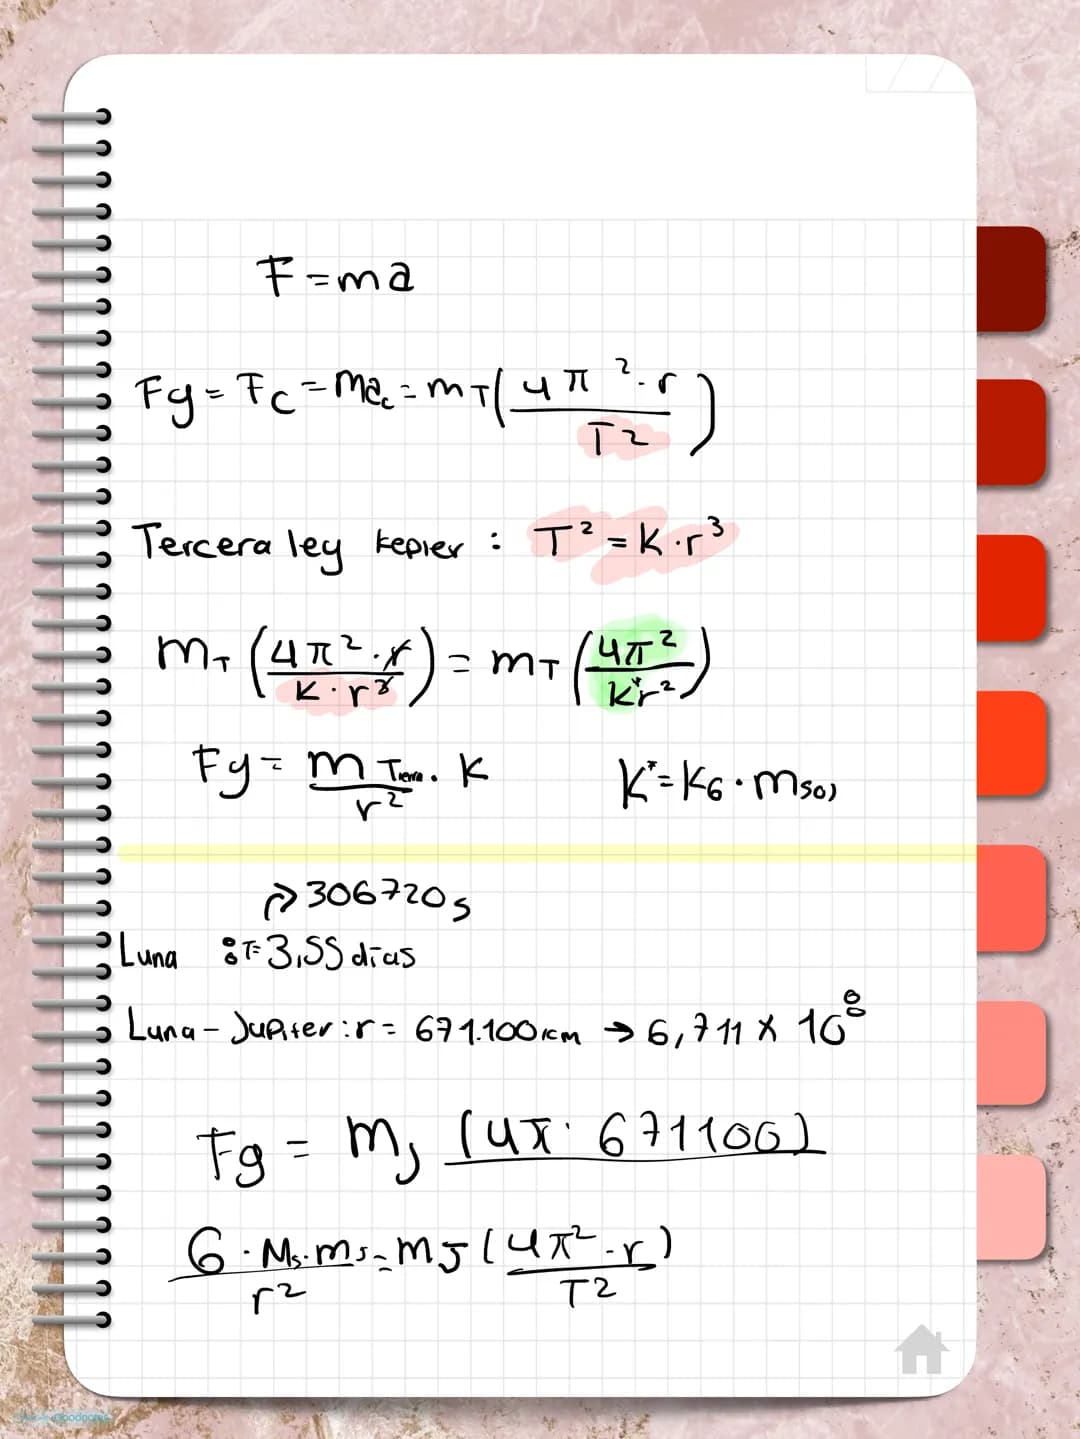 F = ma
Fg = Fc = mac = mT(4π²·r / T²)
Tercera ley kepler : T² = K·r³
mT (4π²·r / K·r³) = mT (4π² / K*r²)
Fg = m Tierra · K / r²   K* = KG · msol
→ 306720 s
Luna : T= 3,55 días
Luna - Jupiter : r = 671.100 km → 6,711 x 10⁸
Fg = mJ (4π· 671100)
G · Ms·mJ / r² = mJ (4π²·r / T²)